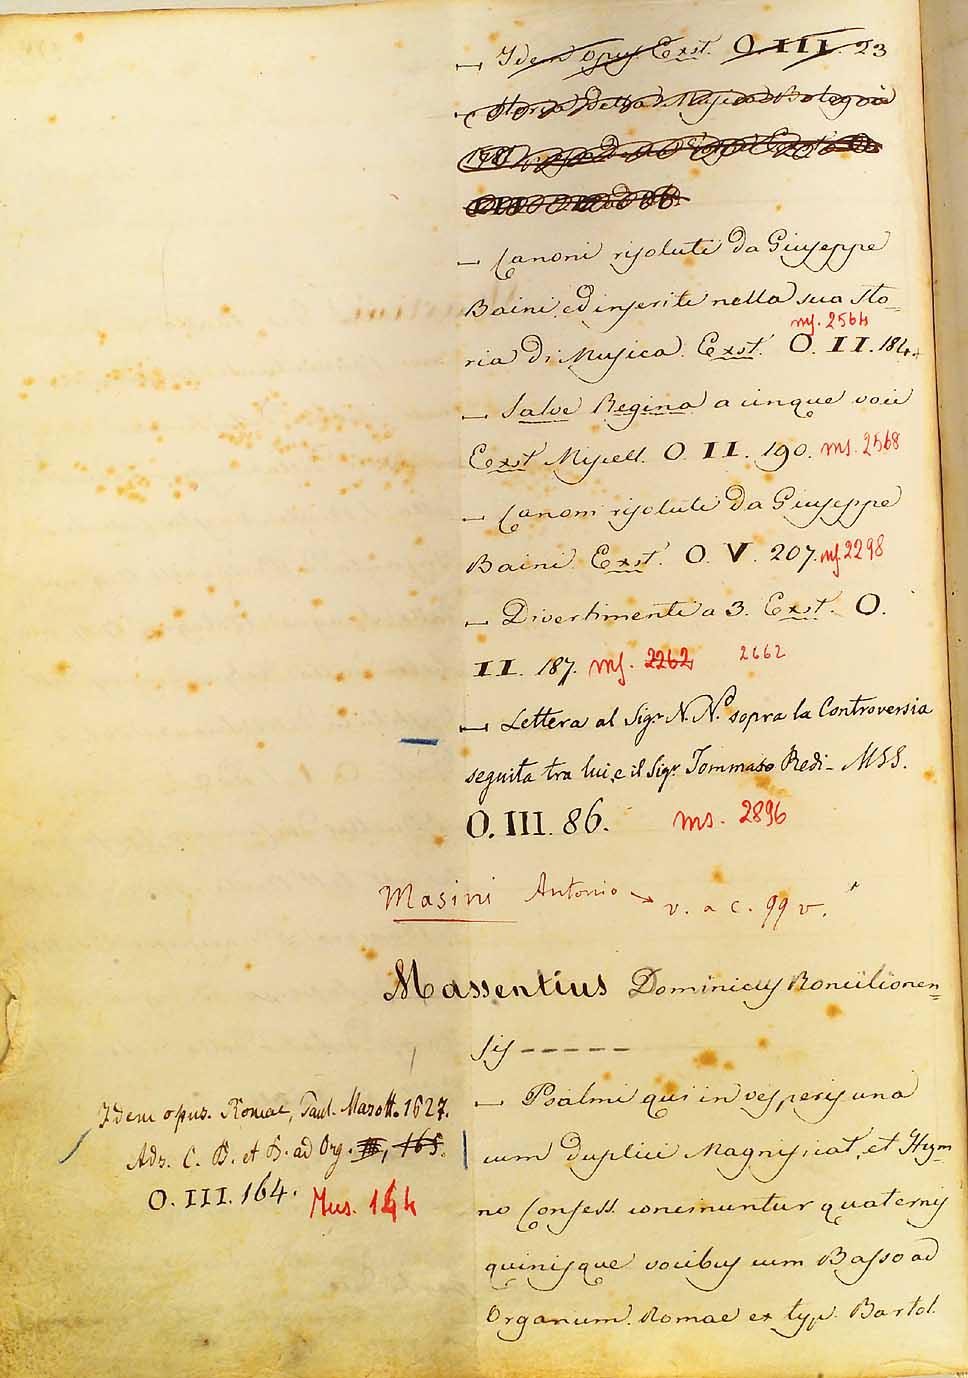 — Idem opus. Exst. O. III. 23
— Storia della Musica Bologna
1781
III
— Canoni risoluti da Giuseppe
Baini ed inseriti nella sua Sto=
ms. 2564
ria di Musica. Exst. O. II. 184.
— Salve Regina a cinque voci
Exst Miscell. O. II. 190. ms. 2568
— Canoni risoluti da Giuseppe
Baini. Exst. O. V. 207. ms. 2298
— Divertimenti a 3. Exst. O.
II. 187. ms. 2262 2662
— Lettera al Sigr. N. N.° sopra la Controversia
seguita tra lui, e il Sigr. Tommaso Redi - MSS.
O. III. 86. ms. 2896
Masini Antonio → v. a c. 99 v.
Massentius Dominicus Roncilionen=
sis -----
— Psalmi qui in vesperis una
cum duplici Magnificat, et Hym=
no Confess. concinuntur quaternis
quinisque vocibus cum Basso ad
Organum. Romae ex typ. Bartol.
Idem opus. Romae, Paul. Masott. 1627.
Ads. C. B. et B. ad Org. III, 165.
O. III. 164. Mus. 144